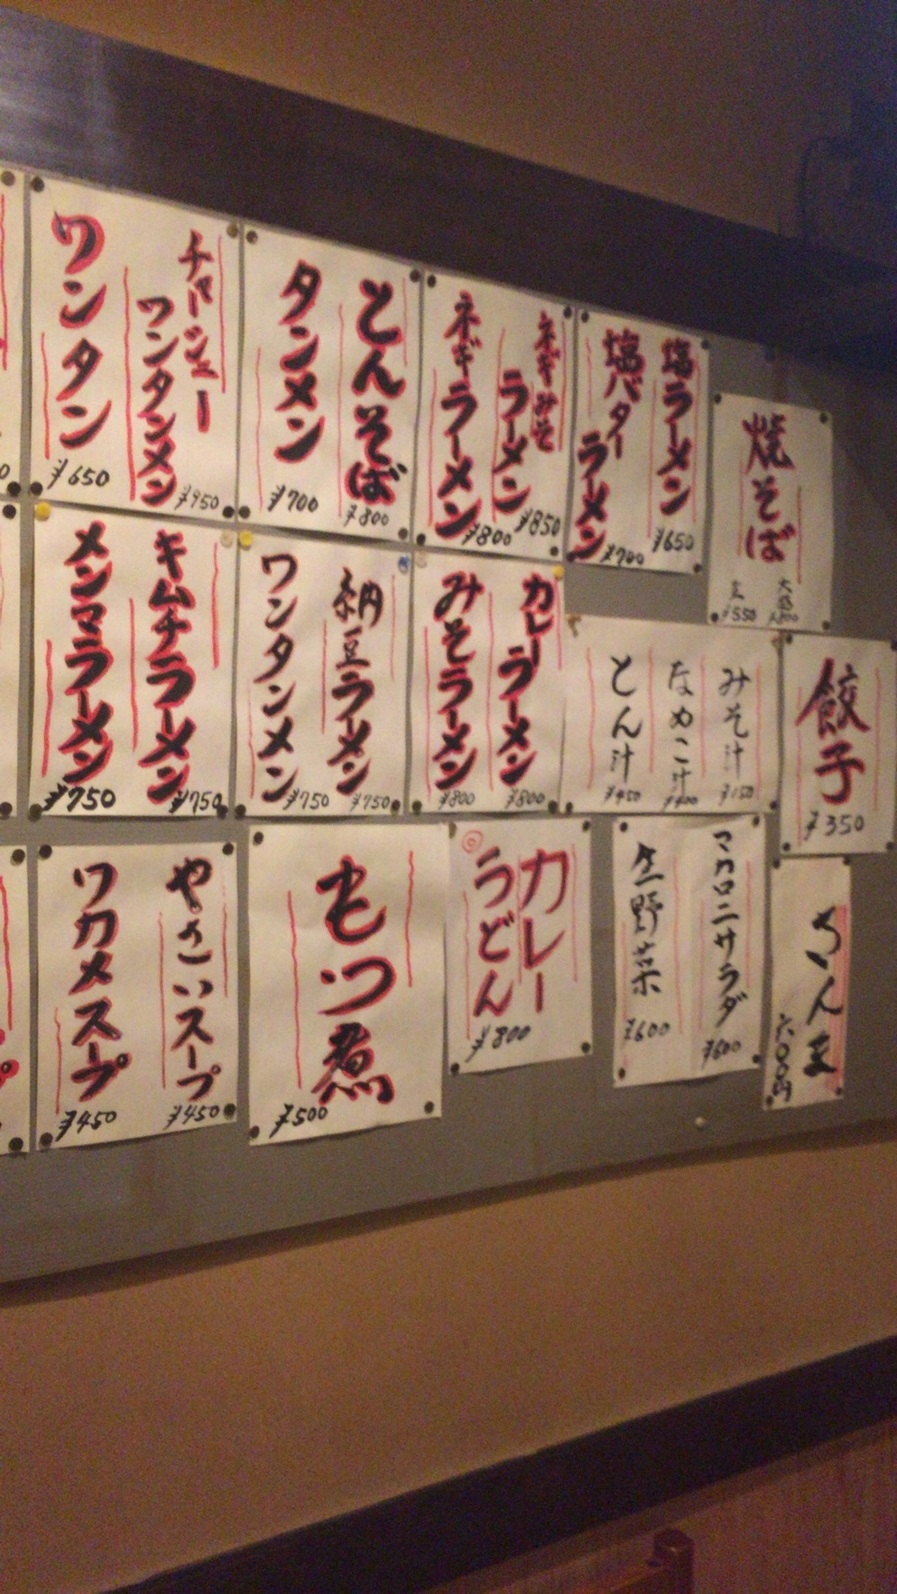 焼そば
¥550
塩ラーメン
¥650
塩バターラーメン
¥700
ネギみそラーメン
¥850
ネギラーメン
¥800
とんそば
¥800
タンメン
¥700
チャーシューワンタンメン
¥950
ワンタン
¥650
餃子
¥350
みそ汁
¥150
なめこ汁
とん汁
カレーラーメン
¥800
みそラーメン
¥800
納豆ラーメン
¥750
ワンタンメン
¥750
キムチラーメン
¥750
メンマラーメン
¥750
さんま
六〇〇円
マカロニサラダ
¥600
生野菜
¥600
カレー
うどん
¥800
もつ煮
¥500
やさいスープ
¥450
ワカメスープ
¥450